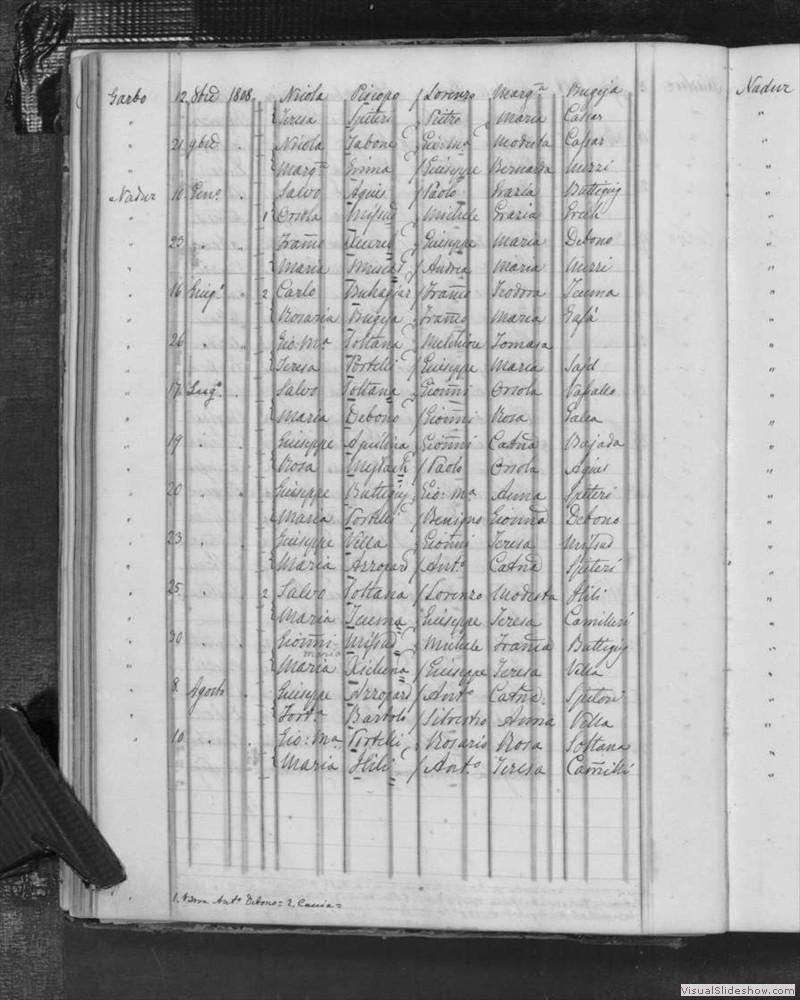 Garbo 12 8bre 1808 Nicola Piscopo Lorenzo Margta Bugeja Nadur
" Teresa Spiteri Pietro Maria Cassar "
" 21 9bre . Nicola Tabone Gio: Ma Modesta Cassar "
" Margta Grima Giuseppe Bernarda Mizzi "
Nadur 10 Genro . Salvo Agius Paolo Grazia Buttigieg "
" 1 Orsola Mifsud Michele Grazia "
" 23 . . Franco Giuseppe Maria Debono "
" Maria Mifsud Andrea Maria Mizzi "
" 16 Giugo . 2 Carlo Buhagiar Franco Teodora Teuma "
" Rosaria Bugeja Franco Maria Gafà "
" 26 . . Gio: Ma Soltana Melchiore Tomasa "
" Teresa Portelli Giuseppe Maria Sajd "
" 17 Lugo . Salvo Soltana Gionni Orsola Vassallo "
" Maria Debono Gionni Rosa Galea "
" 19 . . Giuseppe Aquilina Gionni Catna Bajada "
" Rosa Paolo Orsola Agius "
" 20 . . Giuseppe Buttigieg Gio: Ma Anna Spiteri "
" Maria Portelli Benigno Gionna Debono "
" 23 . . Giuseppe Villa Gionni Teresa Mifsud "
" Maria Azzopard Anto Catna Spiteri "
" 25 . . 2 Salvo Soltana Lorenzo Modesta Hili "
" Maria Teuma Giuseppe Teresa Camilleri "
" 30 . . Gionni Mifsud Michele Franca Buttigieg "
maria
" Maria Xicluna Giuseppe Teresa Villa "
" 8 Agosto . Giuseppe Azzopard Anto Catna Spiteri "
" Forta Bartolo Silvestro Anna Villa "
" 10 . . Gio: Ma Portelli Rosario Rosa Soltana "
Maria Hili Anto Teresa Camilli "
1. Vedova Anto Debono = 2. =
VisualSlideshow.com